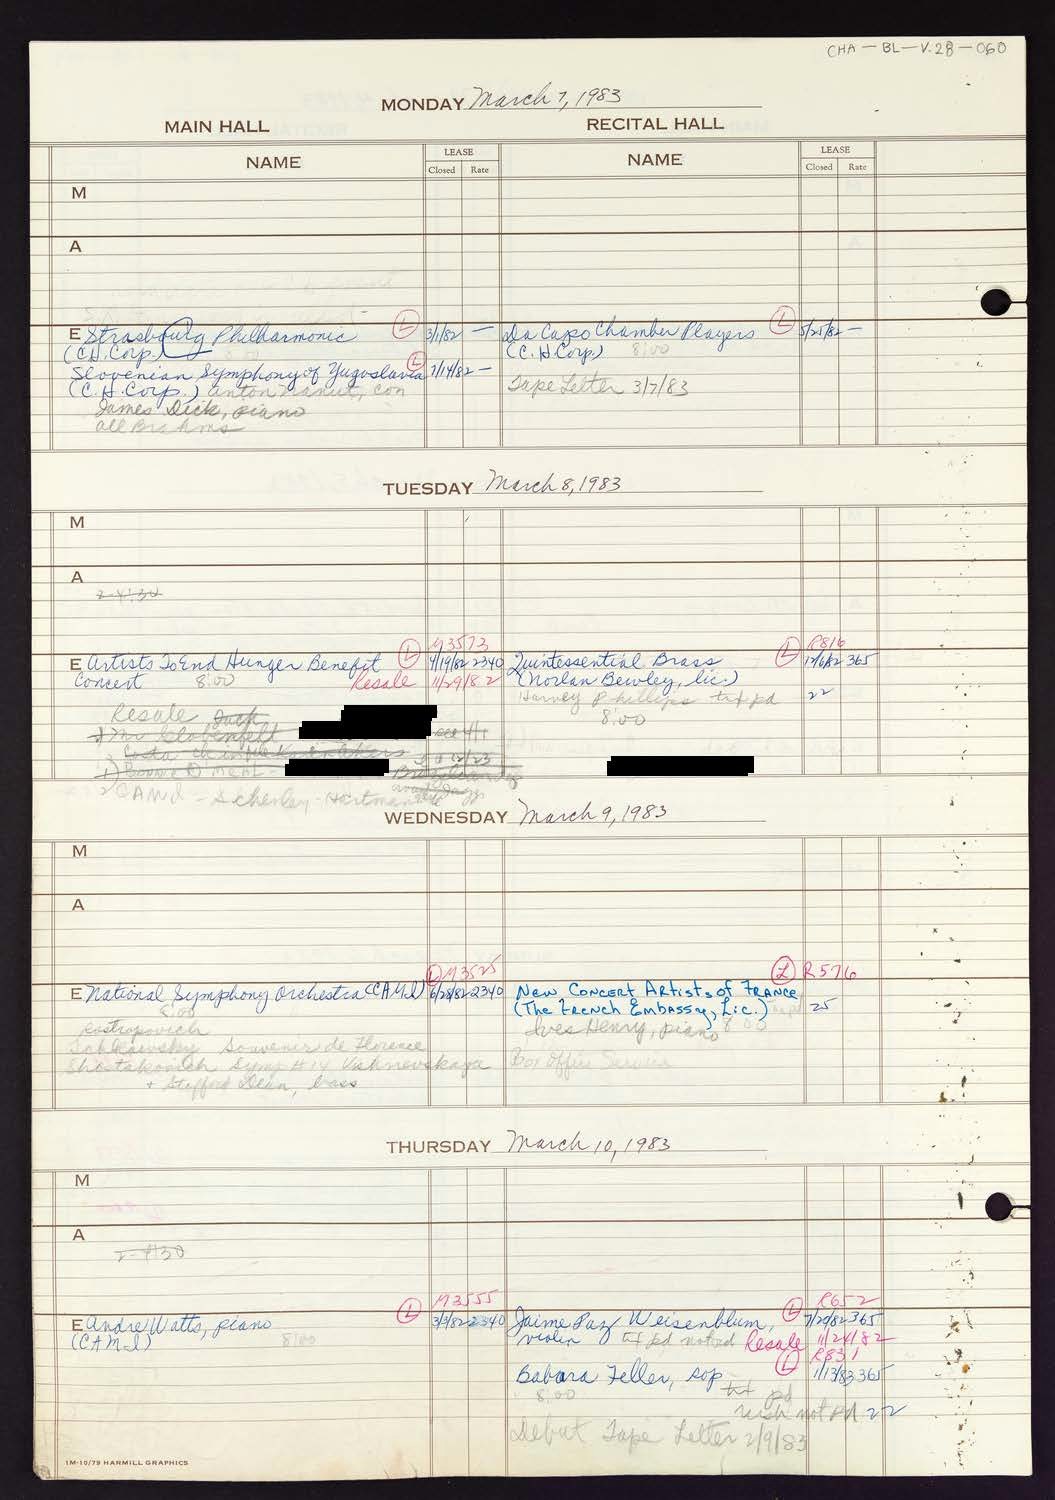 CHA-BL-V.28-060
MONDAY March 7, 1983
MAIN HALL RECITAL HALL
NAME LEASE NAME LEASE
Closed Rate Closed Rate
M
A
E Strasbourg Philharmonic (L) 3/1/82 — Da Capo Chamber Players (L) 5/25/82 —
(C.H.Corp.) 8:00 (C.H.Corp.) 8:00
Slovenian Symphony of Yugoslavia (L) 7/14/82 — Tape Letter 3/7/83
(C.H.Corp.) Anton Nanut, con
James Dick, piano
All Brahms
TUESDAY March 8, 1983
M
A
2-4:30
(L) M3573 (L) R816
E Artists To End Hunger Benefit 4/19/82 2340 Quintessential Brass 12/6/82 365
Concert 8:00 Resale 11/29/82 (Norlan Bewley, lic.)
Harvey Phillips txt pd 22
8:00
Resale
Mr Globenfelt
2) CAMI - Schenley - Hartman
WEDNESDAY March 9, 1983
M
A
(L) M3525 (L) R576
E National Symphony Orchestra (CAMI) 6/28/82 2340 New Concert Artists of France
8:00 (The French Embassy, Lic.) 25
Rostropovich Ives Henry, piano 8:00
Tchkaovsky Souvenir de Florence
Shostakovich Symp #14 Vishnevskaya Box Office Service
+ Stafford Dean, bass
THURSDAY March 10, 1983
M
A
2-4:30
(L) M3555 (L) R652
E Andre Watts, piano 3/3/82 2340 Jaime Paz Weisenblum, 7/29/82 365
(CAMI) 8:00 violin txt pd not ad Resale 11/24/82
(L) R831
Babara Feller, sop 1/13/83 365
8:00 txt pd
not pd 22
Debut Tape Letter 2/9/83
1M-10/79 HARMILL GRAPHICS